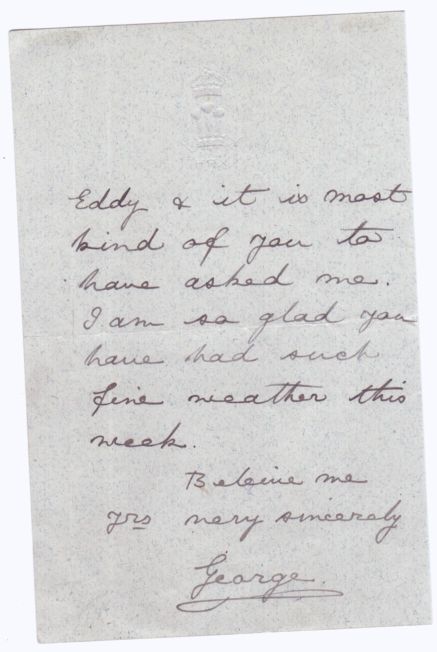 Eddy & it is most
kind of you to
have asked me.
I am so glad you
have had such
fine weather this
week.
Beleive me
yrs very sincerely
George.